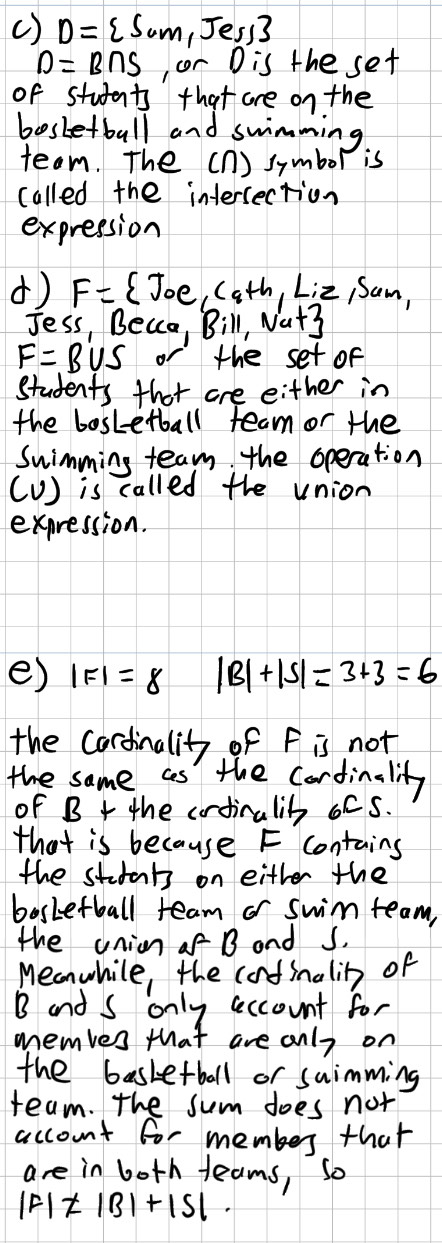 c) D = {Sam, Jess}
D = B∩S, or D is the set
of students that are on the
basketball and swimming
team. The (∩) symbol is
called the intersection
expression
d) F = {Joe, Cath, Liz, Sam,
Jess, Becca, Bill, Nat}
F = B∪S or the set of
students that are either in
the basketball team or the
swimming team. the operation
(∪) is called the union
expression.
e) |F| = 8 |B| + |S| = 3+3 = 6
the cardinality of F is not
the same as the cardinality
of B + the cardinality of S.
that is because F contains
the students on either the
basketball team or swim team,
the union of B and S.
Meanwhile, the cardinality of
B and S only account for
members that are only on
the basketball or swimming
team. The sum does not
account for members that
are in both teams, so
|F| ≠ |B| + |S|.